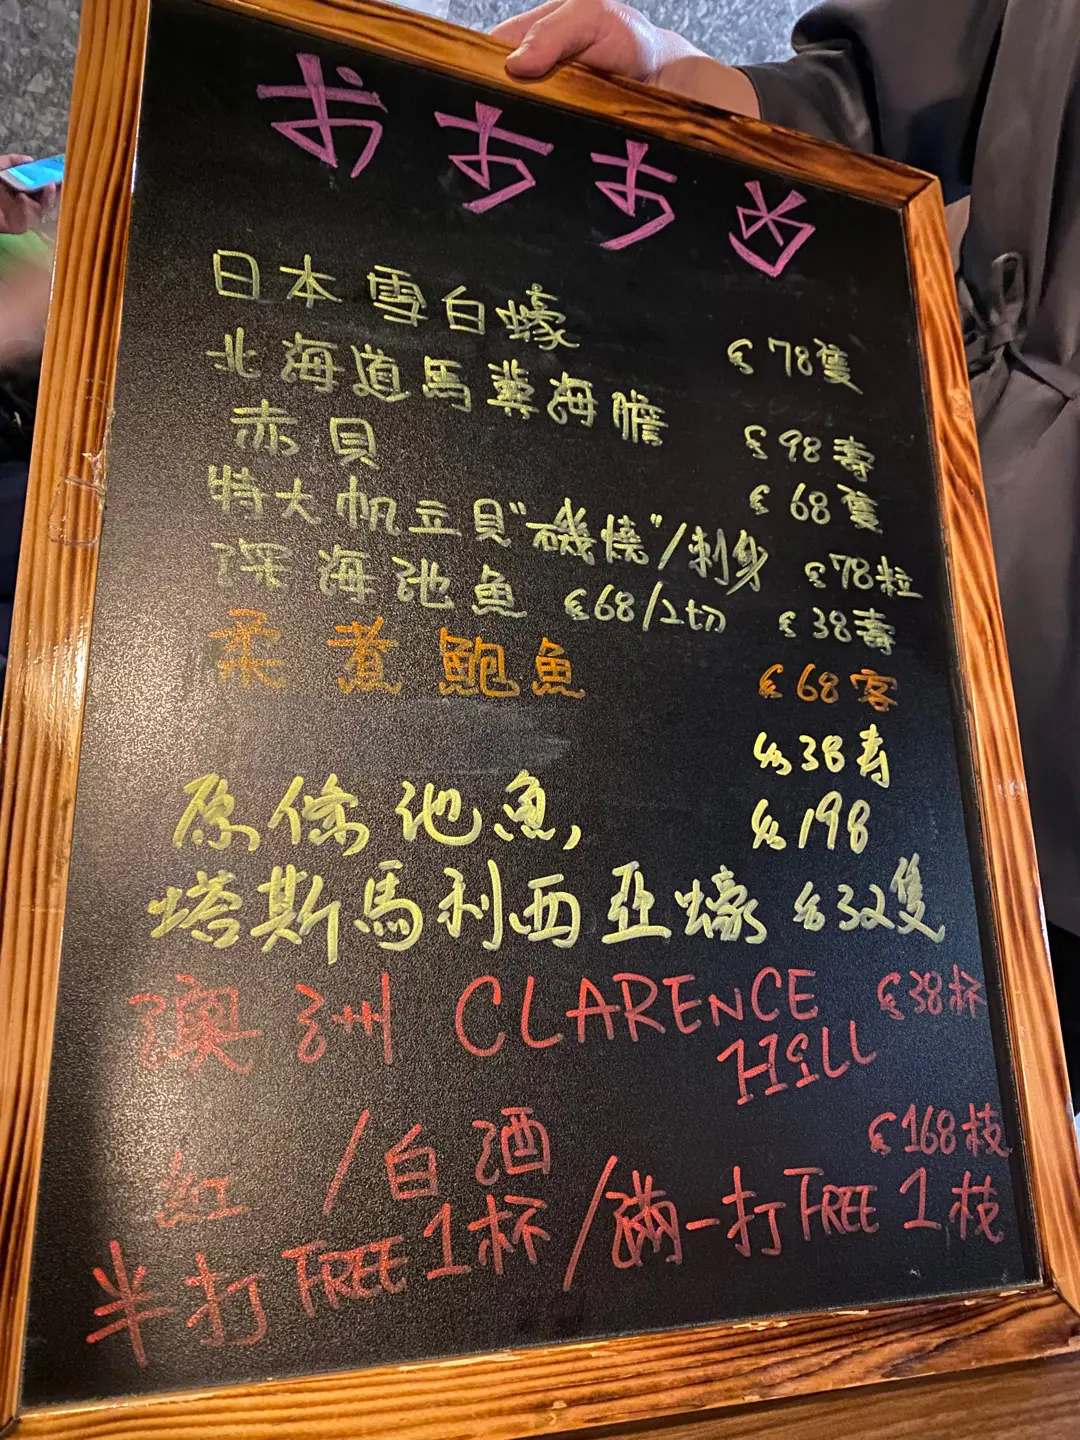 おすすめ
日本雪白蠔 $78隻
北海道馬糞海膽 $98壽
赤貝 $68隻
特大帆立貝"磯燒"/刺身 $78粒
深海池魚 $68/2切 $38壽
柔煮鮑魚 $68客
$38寿
原條池魚, $198
塔斯馬利西亞蠔 $32隻
澳洲 CLARENCE HiLL $38杯
紅/白酒 $168枝
半打FREE1杯/滿一打FREE1枝